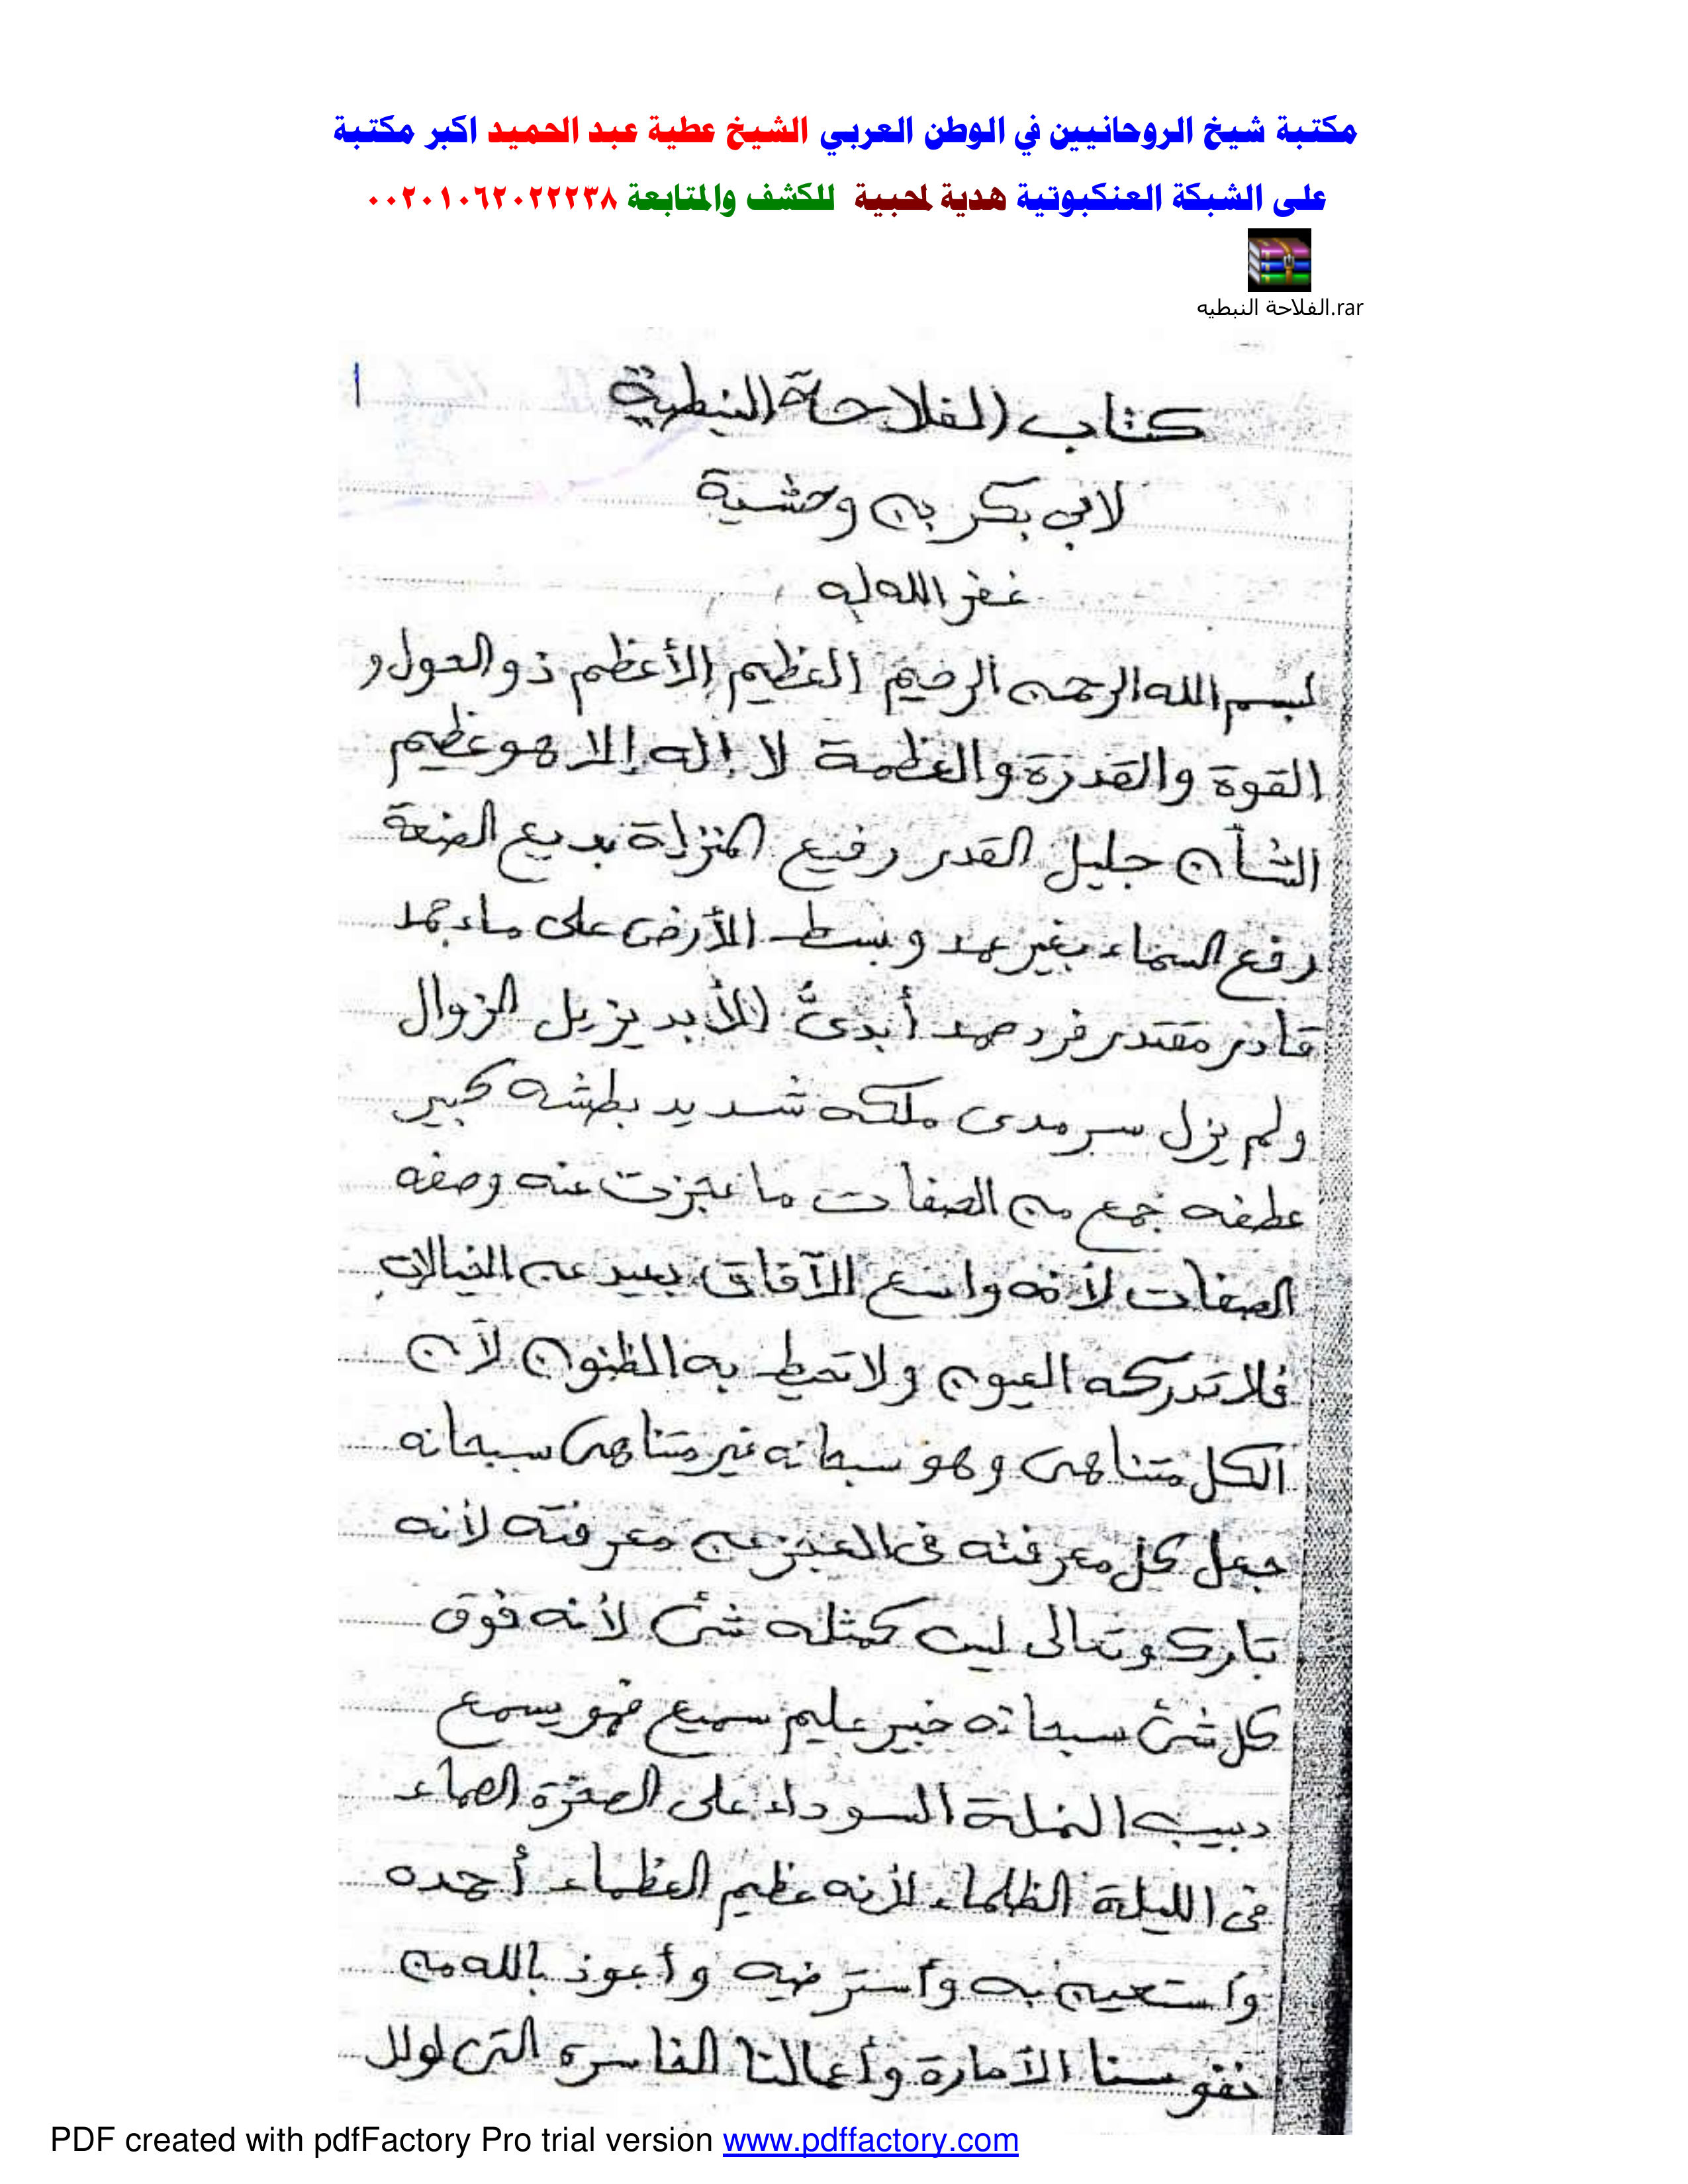 مكتبة شيخ الروحانيين في الوطن العربي الشيخ عطية عبد الحميد اكبر مكتبة
على الشبكة العنكبوتية هدية لمحبيية للكشف والمتابعة ٠٠٢٠١٠٦٢٠٢٢٢٣٨
الفلاحة النبطيه.rar
١
كتاب الفلاحة النبطية
لابي بكر بن وحشية
غفر الله له
بسم الله الرحمن الرحيم العظيم الأعظم ذو الحول و
القوة والقدرة والعظمة لا إله إلا هو عظيم
الشأن جليل القدر رفيع المنزلة بديع الصنعة
رفع السماء بغير عمد وبسط الأرض على ماء جمد
قادر مقتدر فرد صمد أبدىُّ الأبد يزيل الزوال
ولم يزل سرمدى ملكه شديد بطشه كبير
عطفه جمع من الصفات ما عجزت عنه وصفه
الصفات لأنه واسع الآفاق بعيد عن الخيالات
فلا تدركه العيون ولا تحيط به الظنون لأن
الكل متناهى وهو سبحانه غير متناهى سبحانه
جعل كل معرفته فى العجز عن معرفته لأنه
تبارك وتعالى ليس كمثله شئ لأنه فوق
كل شئ سبحانه خبير عليم سميع فهو يسمع
دبيب النملة السوداء على الصخرة الصماء
فى الليلة الظلماء لأنه عظيم العظماء أحمده
وأستعين به وأسترضيه وأعوذ بالله من
نفوسنا الأمارة وأعمالنا الخاسره التى لولا
PDF created with pdfFactory Pro trial version www.pdffactory.com